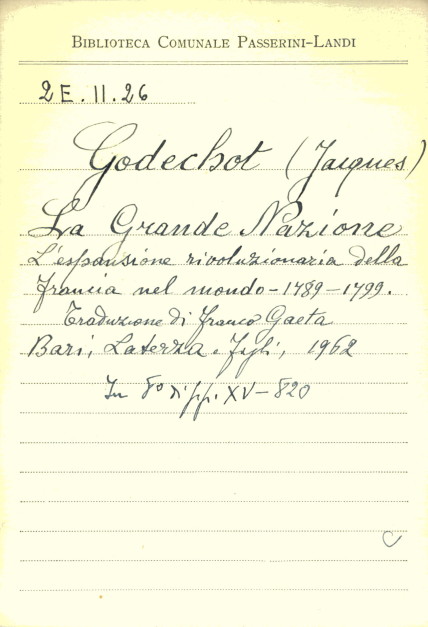 BIBLIOTECA COMUNALE PASSERINI-LANDI
2E.II.26
Godechot (Jacques)
La Grande Nazione
L'espansione rivoluzionaria della
Francia nel mondo - 1789-1799.
Traduzione di Franco Gaeta
Bari, Laterza . Figli, 1962
In 8° di pp. XV-820